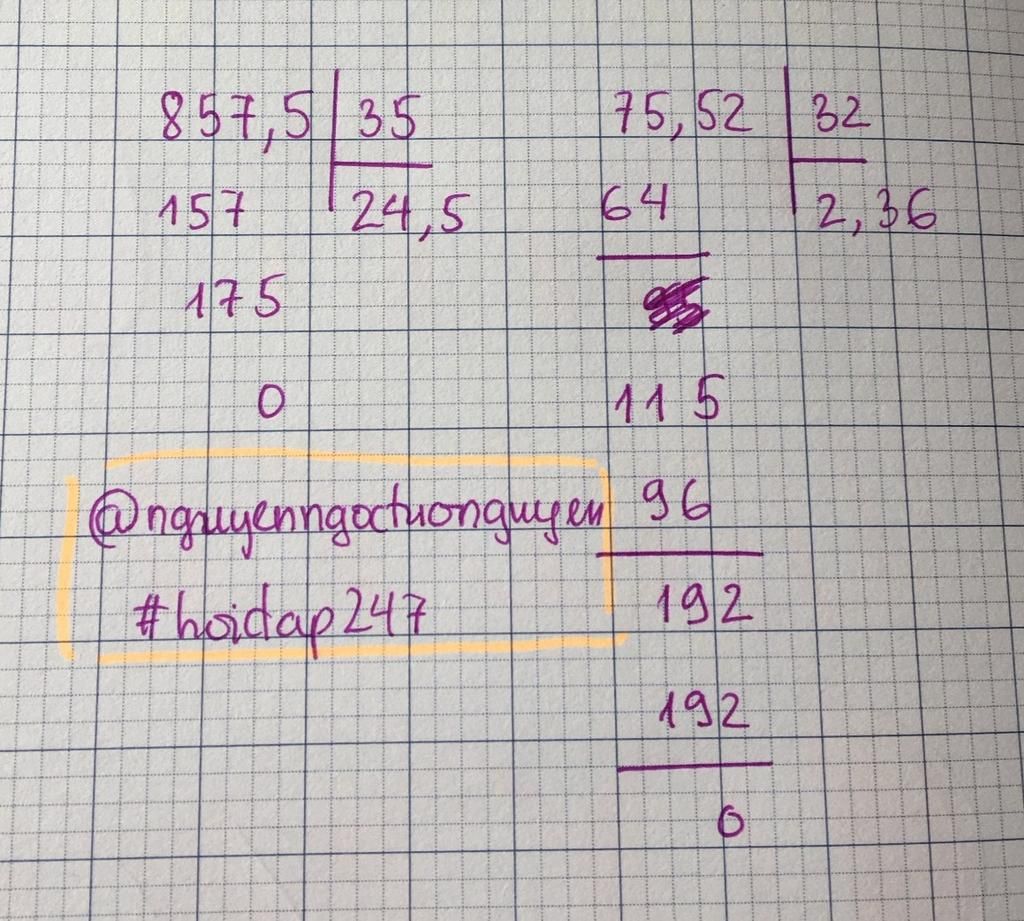 857,5 35
157 24,5
175
0
75,52 32
64 2,36
115
96
192
192
0
@nguyenngoctuonguyen
#hoidap247